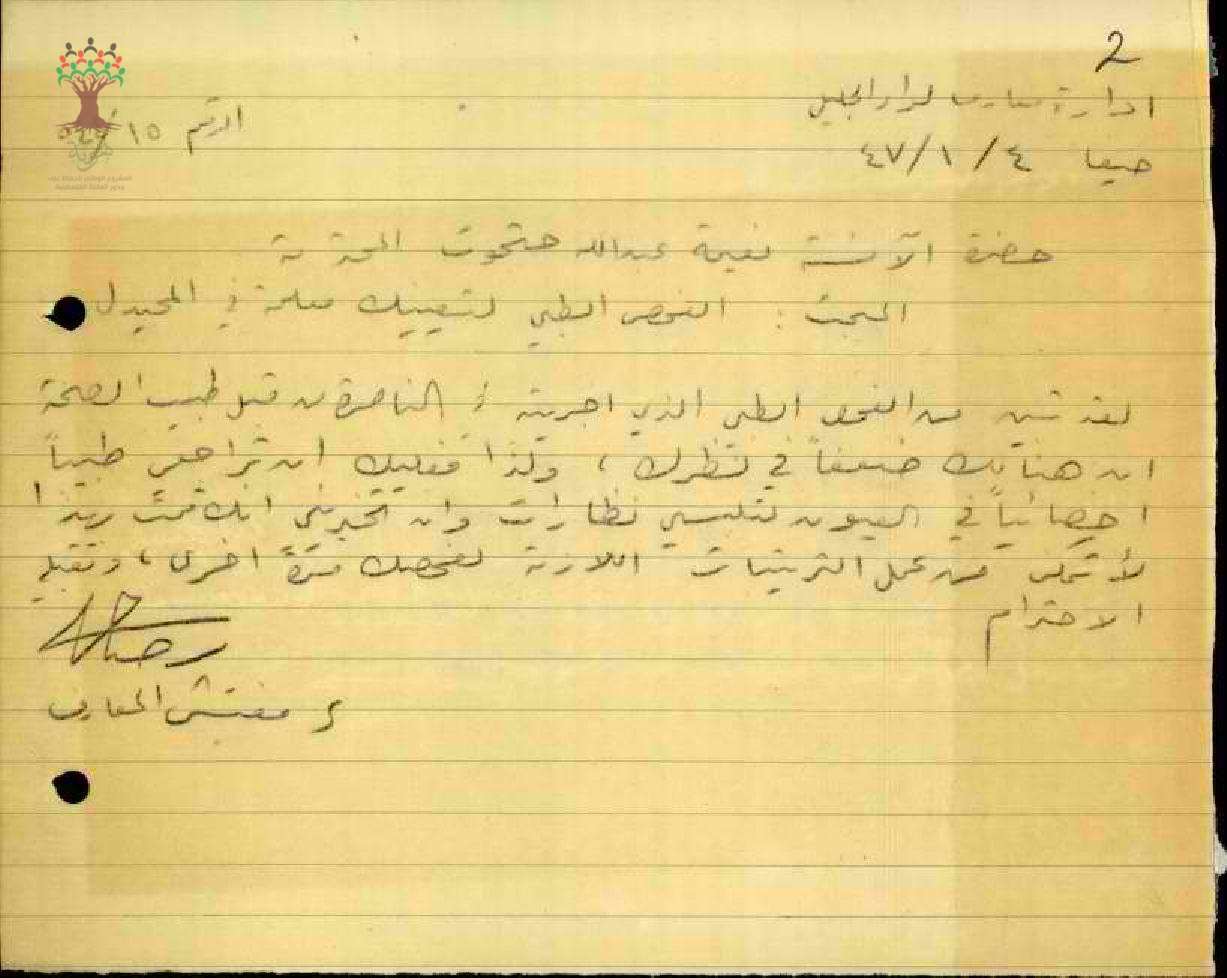 2
ادارة معارف لواء الجليل
حيفا ٤ / ١ / ٤٧
الرقم ١٥ /
المشروع الوطني للحفاظ على
جذور العائلة الفلسطينية
حضرة الآنسة نعيمة عبدالله حتحوت المحترمة
المبحث : الفحص الطبي لتعيينك معلمة في المجيدل
لقد تبين من الفحص الطبي الذي اجريته في الناصرة من قبل طبيب الصحة
ان هنالك ضعفاً في نظرك ، ولذا فعليك ان تراجعي طبيباً
اخصائياً في العيون لتلبسي نظارات وان تخبريني انك قمت بهذا
لأتمكن من عمل الترتيبات اللازمة لفحصك مرة اخرى ، وتقبلي
الاحترام
مفتش المعارف